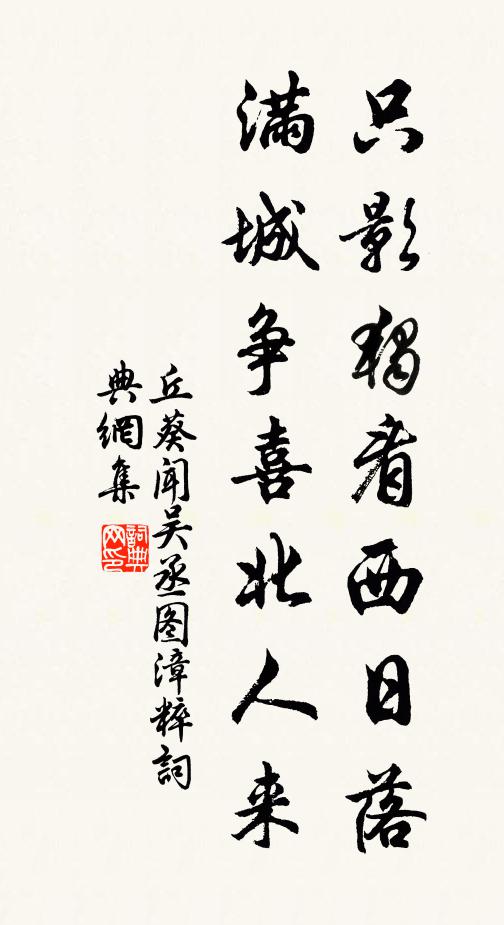 只影獨看西日落
滿城争喜北人来
丘葵闻吴丞图漳粹詞
典網集
詞典
网印